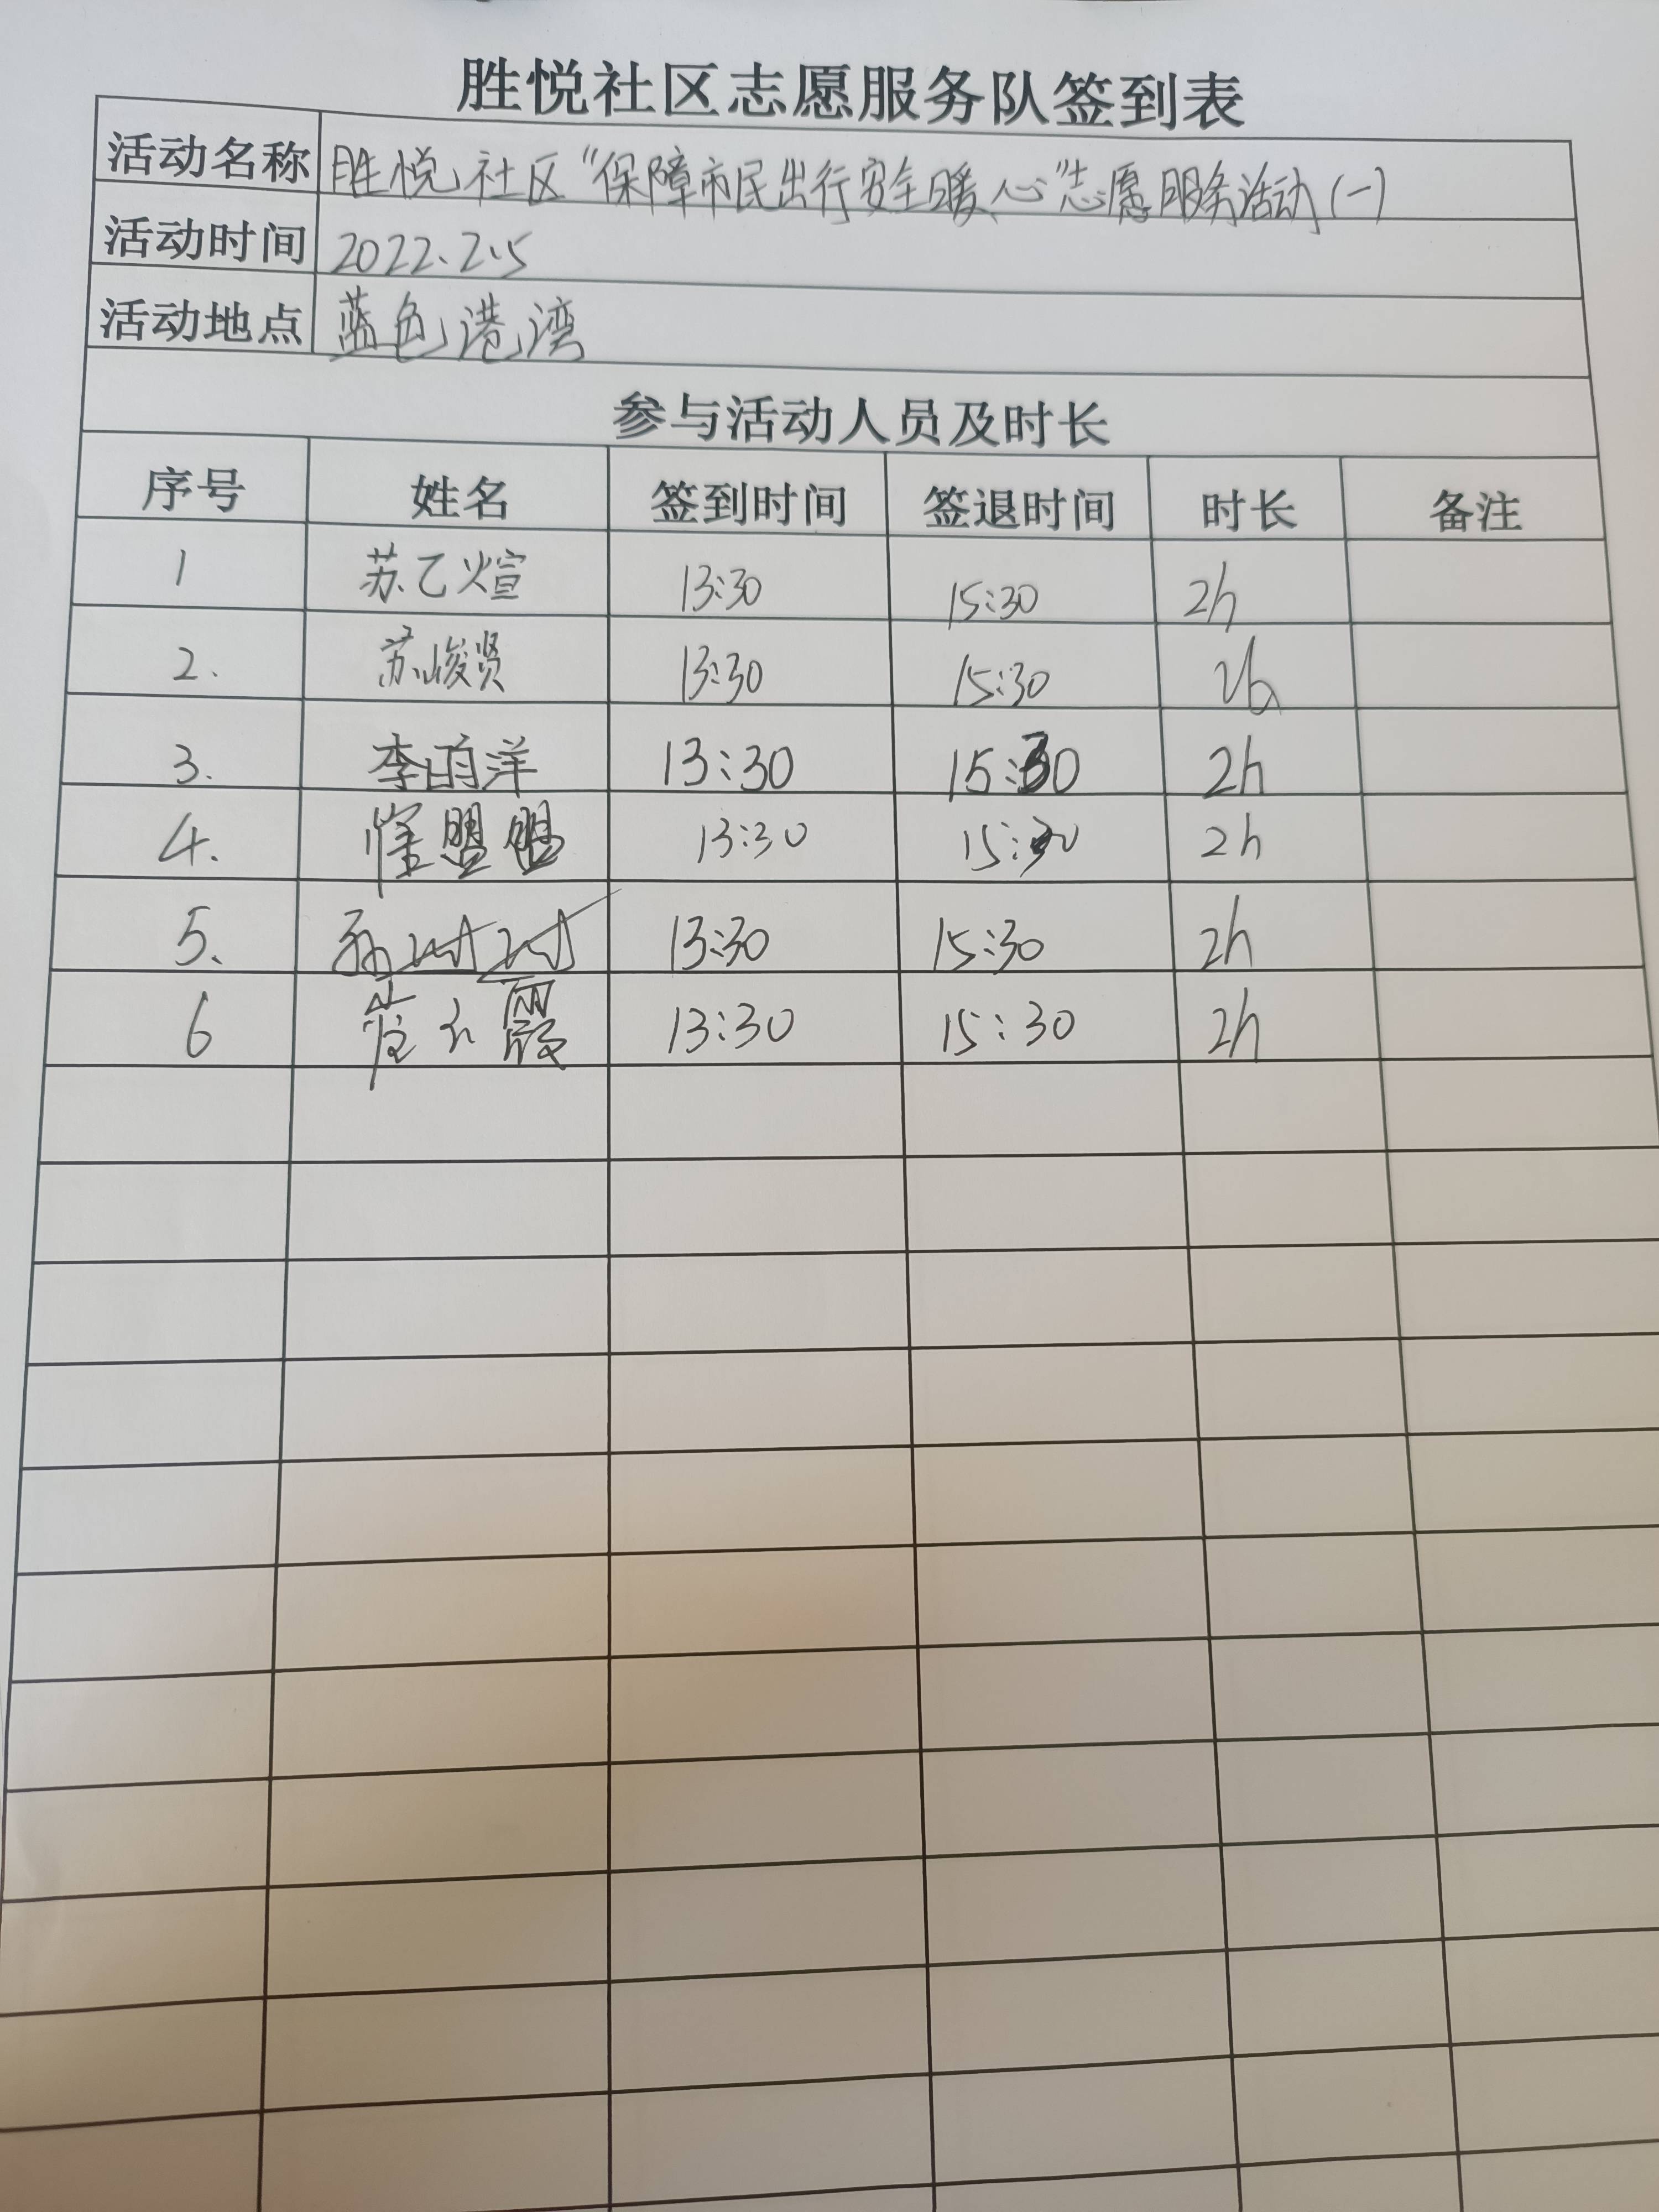 胜悦社区志愿服务队签到表
活动名称 胜悦社区“保障市民出行安全暖心”志愿服务活动(一)
活动时间 2022.2.5
活动地点 蓝色港湾
参与活动人员及时长
序号 姓名 签到时间 签退时间 时长 备注
1 苏乙煊 13:30 15:30 2h
2. 苏峻贤 13:30 15:30 2h
3. 李雨洋 13:30 15:30 2h
4. 崔盟盟 13:30 15:30 2h
5. 13:30 15:30 2h
6 霞 13:30 15:30 2h